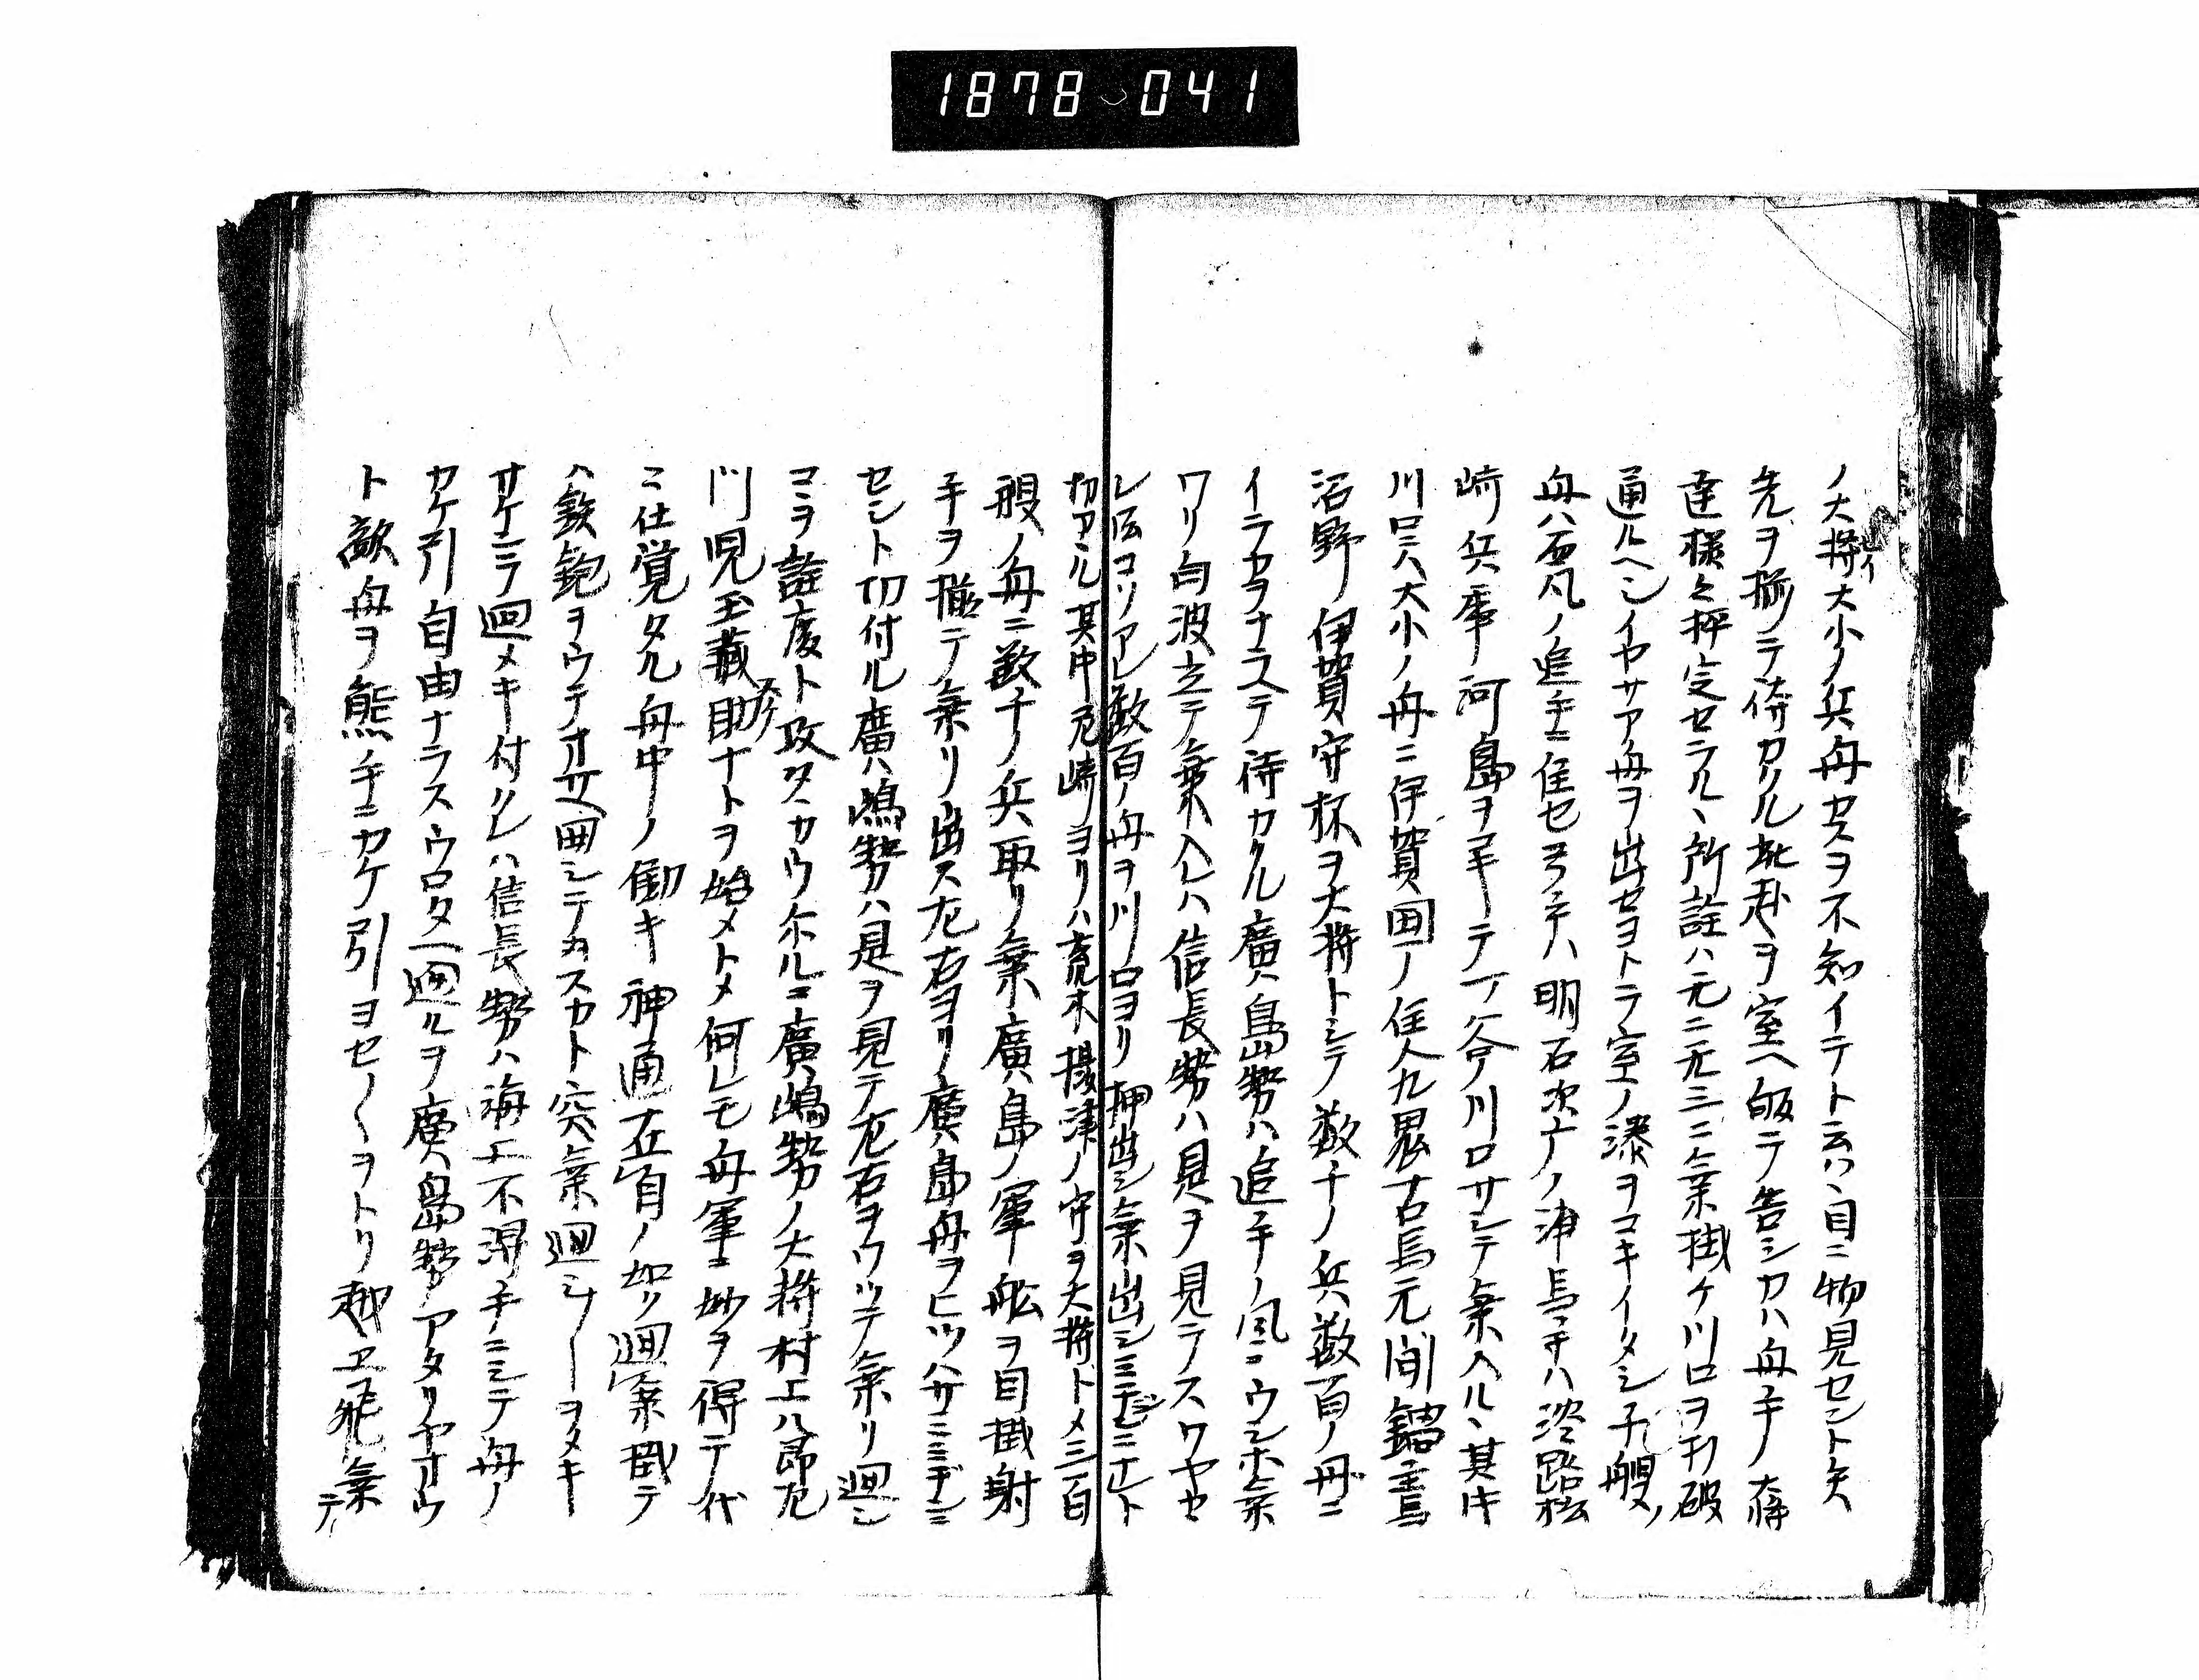 1878-041
ノ大将大小ノ兵舟カスヲ不知イテト云ハ自ニ物見セント矢
先ヲ揃テ待カル此赴ヲ室ヘ皈テ告シカハ舟手ノ大将
達様々抨定セラル丶所詮ハ元ニ元三ニ乗掛ケ川口ヲ打破
通ルヘシイヤサア舟ヲ出セヨトラ室ノ湊ヲコキイタシ千艘ノ
舟ハ百凡ノ追手ニ任セ弓手ハ明石次ナノ浦馬手ハ淡路松
崎兵庫ノ河島ヲ テ一谷川口サシテ乗入ル丶其キ
川口ニハ大小ノ舟ニ伊賀囯ノ住人九鬼右馬元間鍋主馬
沼野ノ伊賀守杯ヲ大将トシテ数千ノ兵数百ノ舟ニ
イテカヲナステ待カクル廣島勢ハ追手ノ風ニウシホ乗
ワリ白波立テ乗入レハ信長勢ハ是ヲ見テスワヤセ
レ伝コソアレ数百ノ舟ヲ川口ヨリ押出シ乗出シミチミニナト
切アル其中尼崎ヨリハ荒木摂津ノ守ヲ大将トメ三百
艘ノ舟ニ数千ノ兵取リ乗廣島ノ軍舩ヲ目掛射
手ヲ揃テ乗リ出ス左右ヨリ廣島舟ヲヒツハサミミヂンニ
セント切付ル廣嶋勢ハ是ヲ見テ左右ヲウツテ乗リ廻シ
コヽヲ詮度ト攻タカウホルニ廣嶋勢ノ大将村上八郎左
門児玉蔵助ナトヲ始メトメ何レモ舟軍ニ妙ヲ得テ代
ニ仕覚タル舟中ノ働キ神通在自ノ如ク廻乗掛テ
ハ鉄炮ヲウテ 囲シテカスカト突乗廻シ ヲメキ
サケニテ廻メキ付クレハ信長勢ハ海上不得手ニシテ舟ノ
カケ引自由ナラスウロタヘ廻ルヲ廣島勢アタリヤオウ
ト敵舟ヲ熊手ニカケ引ヨセ〱ヲトリ越エ飛乗テ